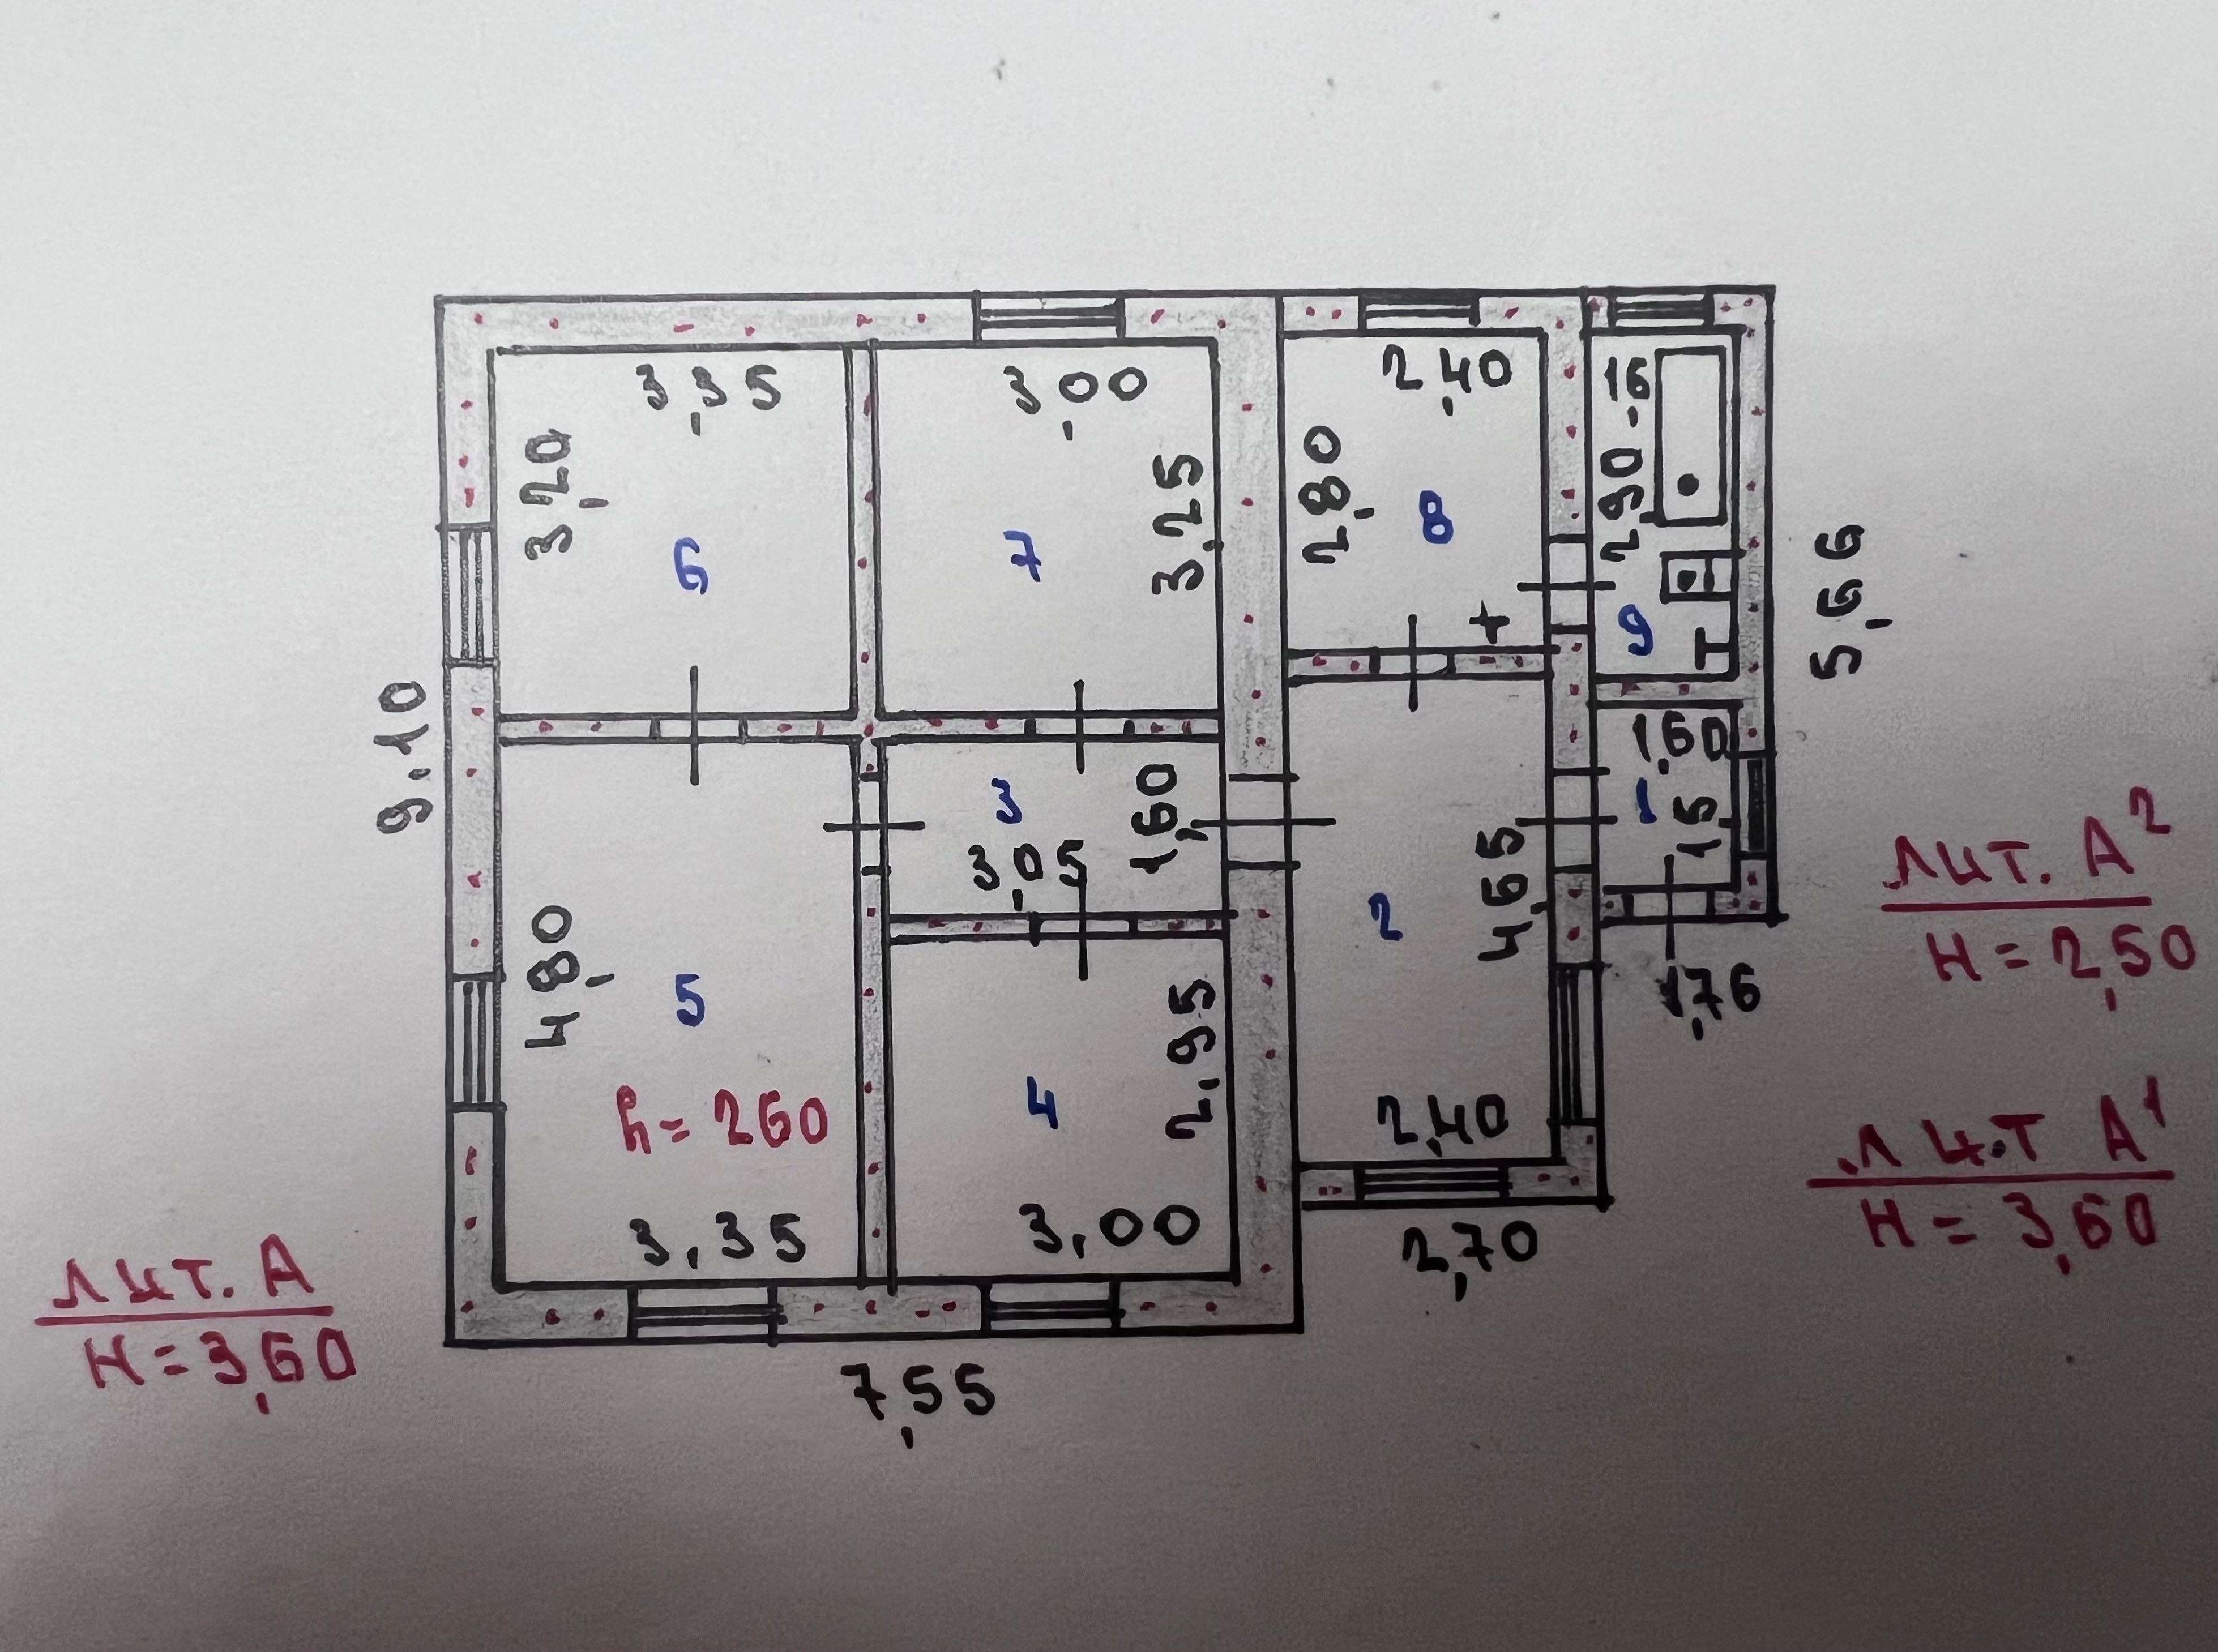 3,35
3,00
2,40
16
3,20
3,25
2,80
2,90
6
7
8
9
5,66
9.10
1,60
3
1,60
1
15
3,05
4,65
2
лит. А²
H = 2,50
4,80
5
2,95
1,76
h = 260
4
2,40
лит А¹
H = 3,60
3,35
3,00
2,70
лит. А
H = 3,60
7,55